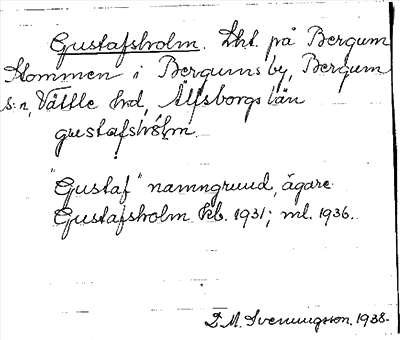 Gustafsholm. Lht. på Bergum
Stommen i Bergums by, Bergum
s:n, Vättle hd, Älfsborgs län
gustafshólm.
"Gustaf" namngruud, ägare.
Gustafsholm kb. 1931; ml. 1936.
D. M. Svenningsson. 1938.